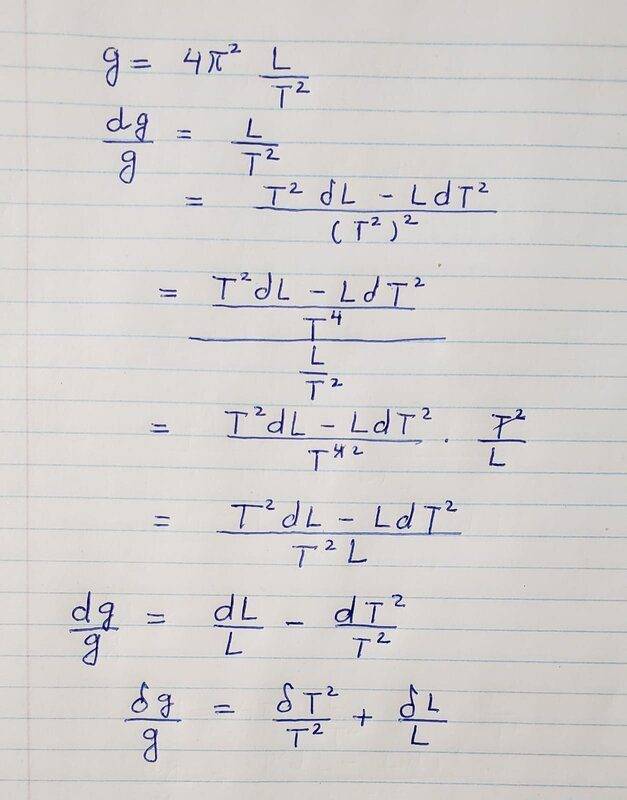 g = 4π² L/T²
dg/g = L/T²
= (T² dL - L dT²)/(T²)²
= ((T² dL - L dT²)/T⁴)/(L/T²)
= (T² dL - L dT²)/T⁴ ² · T²/L
= (T² dL - L dT²)/(T² L)
dg/g = dL/L - dT²/T²
δg/g = δT²/T² + δL/L